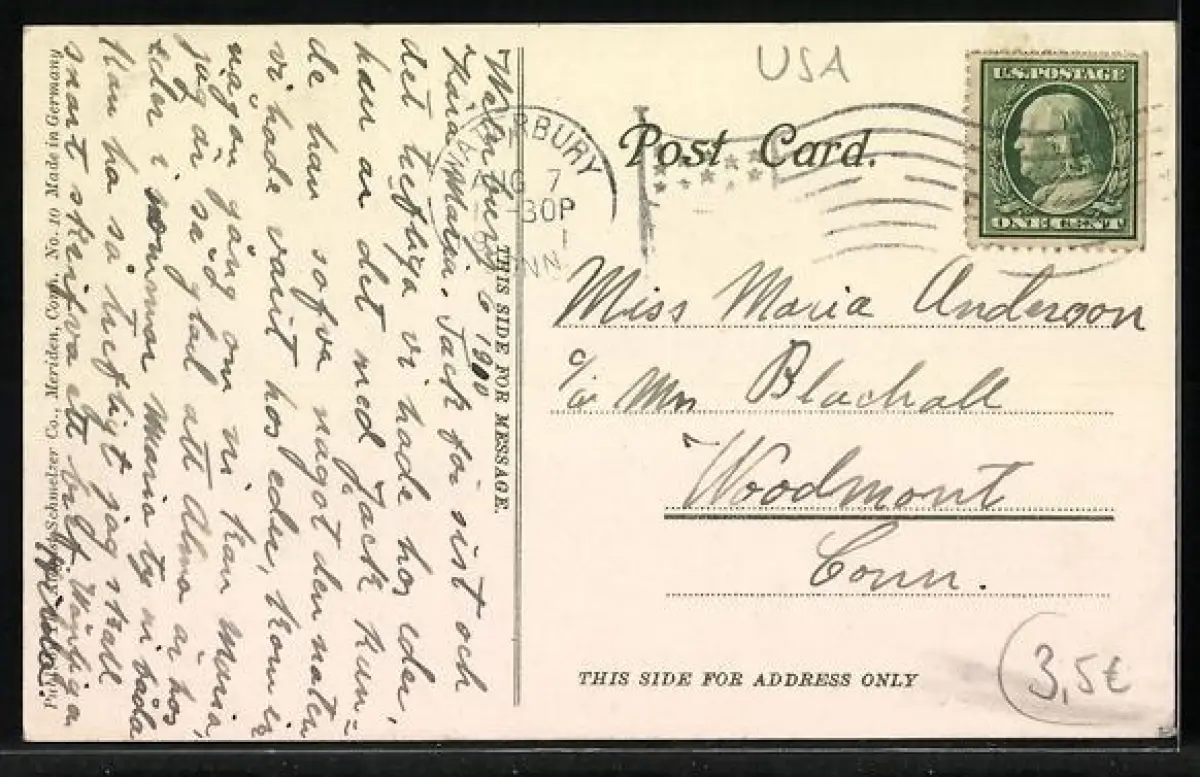 USA
U.S. POSTAGE
ONE CENT
Post Card.
WATERBURY
AUG 7
-30P
CONN.
Miss Maria Anderson
c/o Mrs Blachall
Woodmont
Conn.
THIS SIDE FOR ADDRESS ONLY
3,5€
THIS SIDE FOR MESSAGE.
Waterbury 6 1910
Kära Maria. Tack för sist och
det trefliga vi hade hos eder,
huru är det med Jack kun=
de han sofva något den natten
vi hade varit hos eder, kom ej
någon gång om ni kan Maria,
jag är så glad att Alma är hos
eder i sommar Maria ty ni båda
kan ha så trefligt jag skall
snart skrifva ett bref. Vänligen
Hilda.
Schmelzer Co., Meriden, Conn. No. 10 Made in Germany